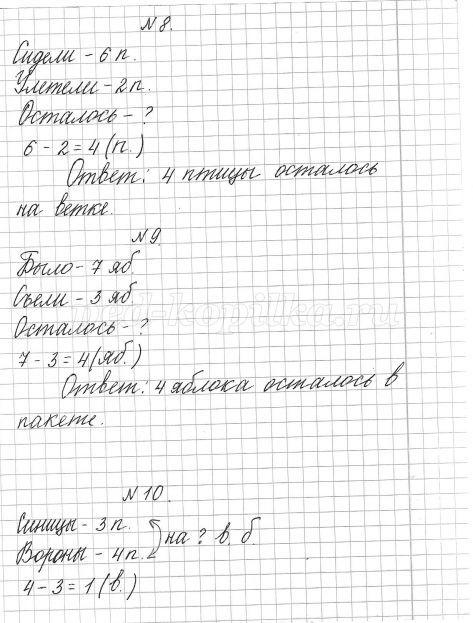 № 8.
Сидели – 6 п.
Улетели – 2 п.
Осталось – ?
6 – 2 = 4 (п.)
Ответ: 4 птицы осталось
на ветке.
№ 9.
Было – 7 яб.
Съели – 3 яб.
Осталось – ?
7 – 3 = 4 (яб.)
Ответ: 4 яблока осталось в
пакете.
№ 10.
Синицы – 3 п.
на ? в. б.
Вороны – 4 п.
4 – 3 = 1 (в.)